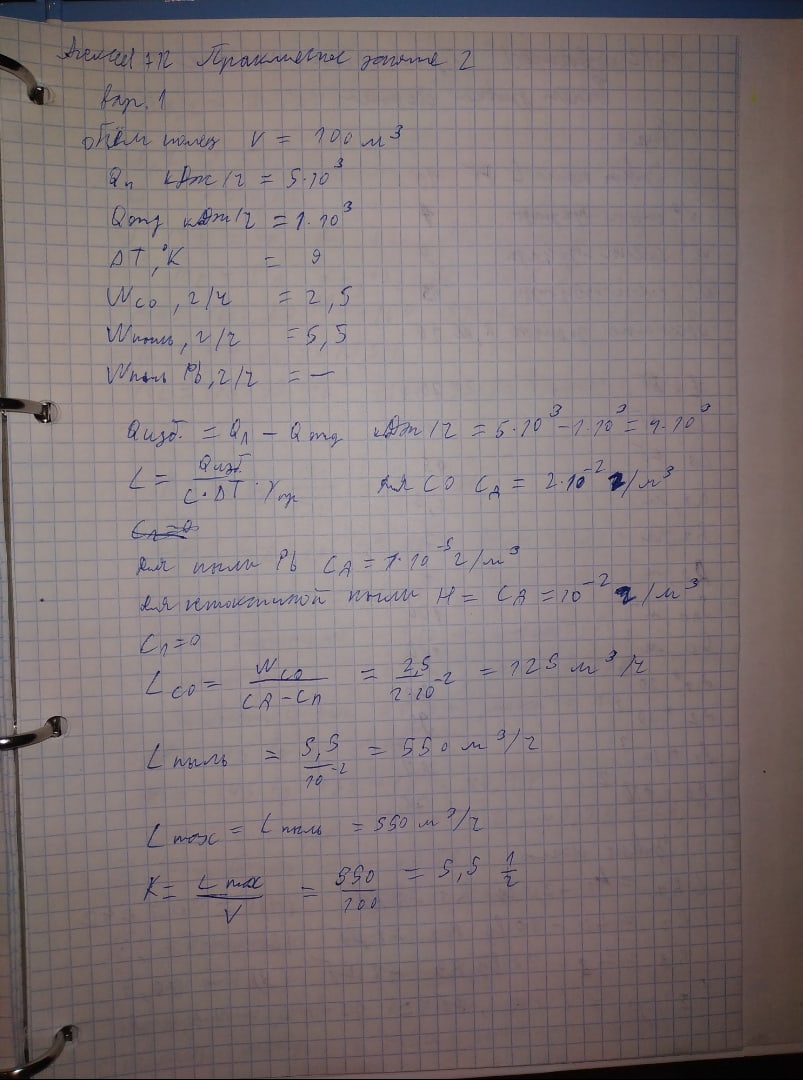 Практическое занятие 2
вар. 1
объём помещ V = 100 м³
Qп кДж/ч = 5·10³
Qотд кДж/ч = 1·10³
ΔT, °K = 9
Wco, г/ч = 2,5
Wпыль, г/ч = 5,5
Wпыль Pb, г/ч = —
Qизб. = Qп – Qотд кДж/ч = 5·10³ – 1·10³ = 4·10³
L = Qизб / C·ΔT·γпр для CO Cд = 2·10⁻² г/м³
для пыли Pb Cд = 1·10⁻⁵ г/м³
для нетоксичной пыли H = Cд = 10⁻² г/м³
Cп=0
Lco = Wco / Cд – Cп = 2,5 / 2·10⁻² = 125 м³/ч
Lпыль = 5,5 / 10⁻² = 550 м³/ч
Lmax = Lпыль = 550 м³/ч
K = Lmax / V = 550 / 100 = 5,5 1/ч